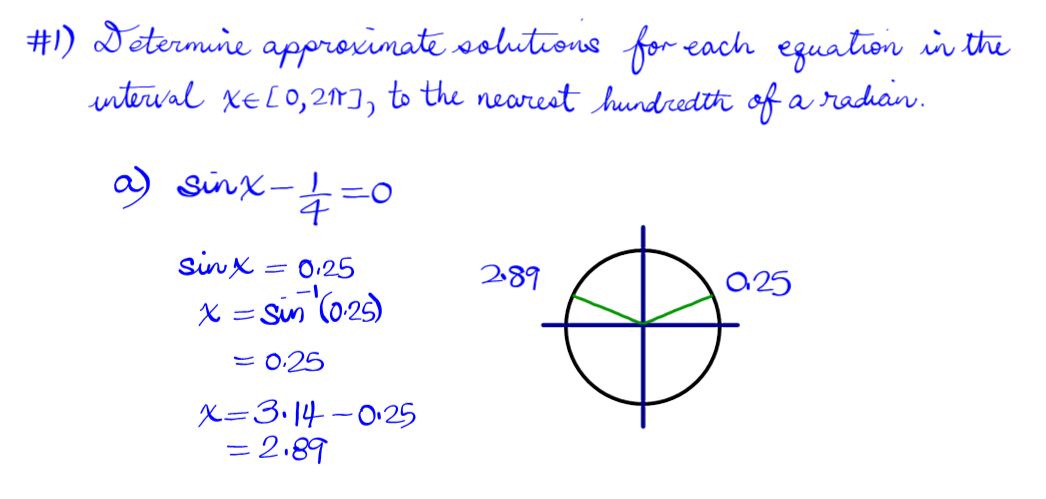 #1) Determine approximate solutions for each equation in the
interval x∈[0,2π], to the nearest hundredth of a radian.
a) sinx - 1/4 = 0
sinx = 0.25
x = sin⁻¹(0.25)
= 0.25
x = 3.14 - 0.25
= 2.89
2.89
0.25